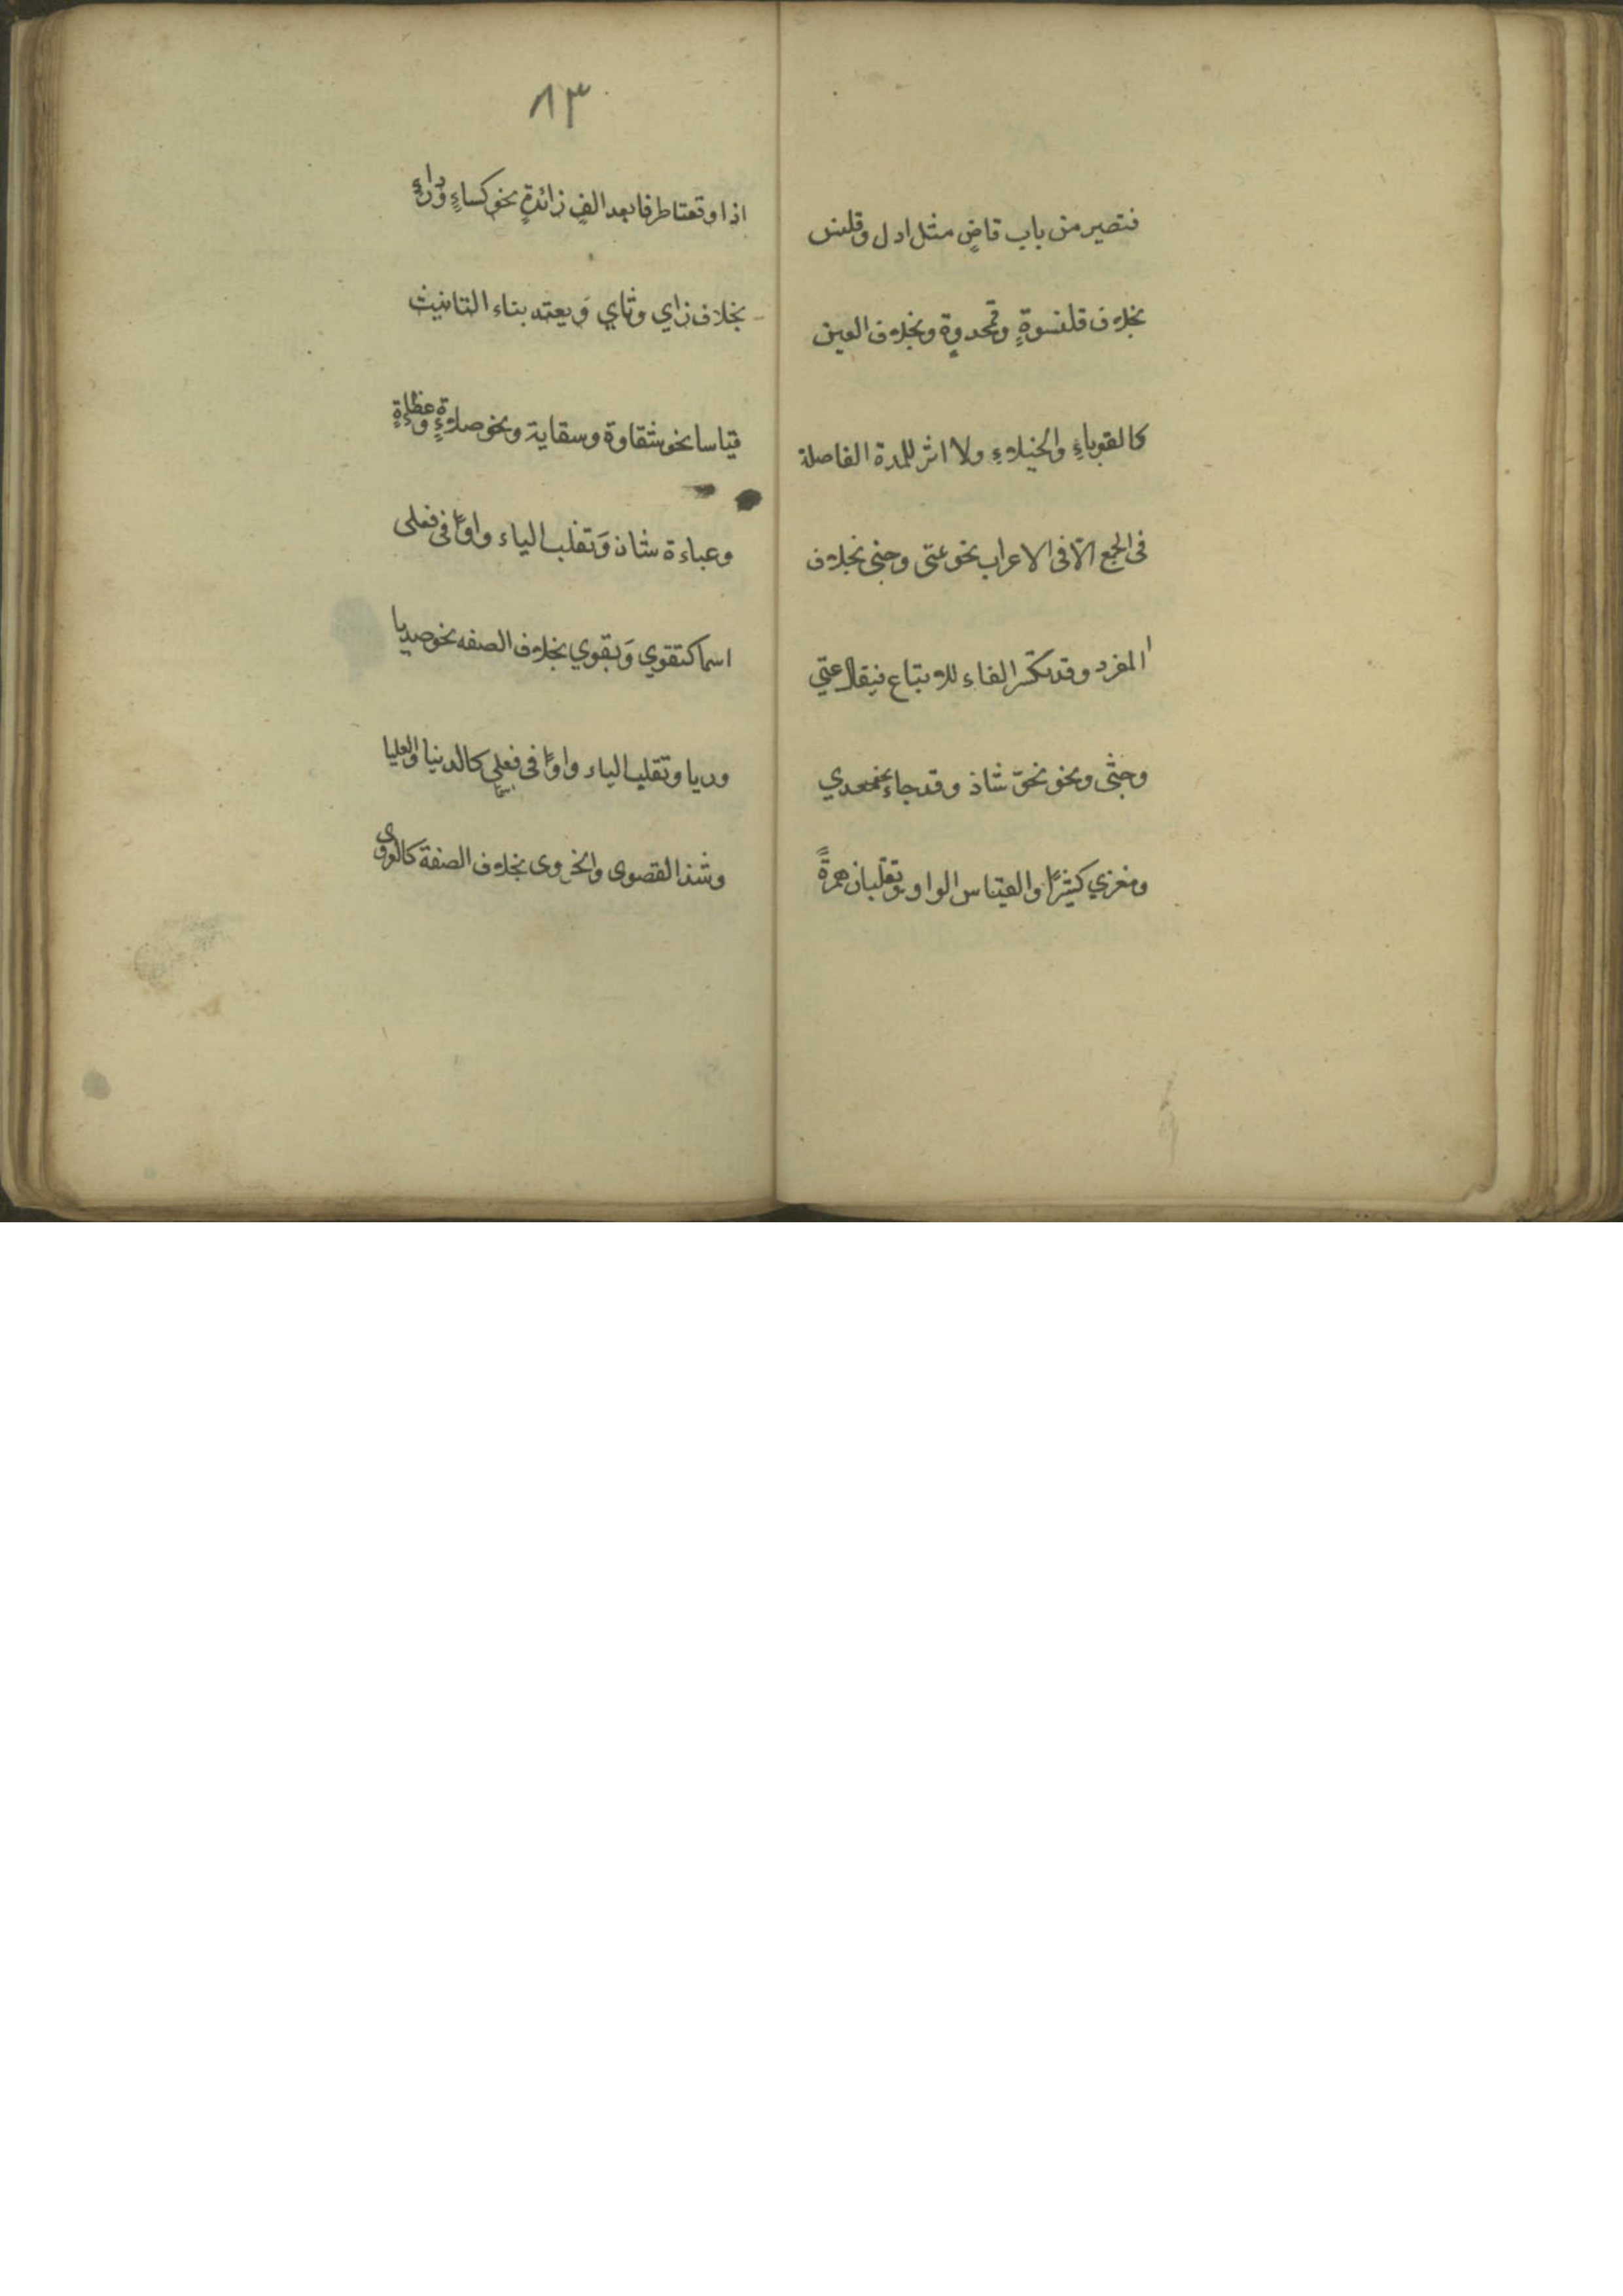 فتصير من باب قاضٍ مثل ادل وقلنس
بخلاف قلنسوةٍ وقمحدوةٍ وبخلاف العين
كالقوباءِ والخيلاءِ ولا اثر للمدة الفاصلة
فى الجمع الّا فى الاعراب نحو عتى وجثى بخلاف
المفرد وقد تكسر الفاء للاتباع فيقال عتِي
وجثى ونحو نحوّ شاذ وقد جاء نحو معدي
ومغزي كثيرًا والقياس الواو وتقلبان همزةً
٨٣
اذا وقعتا طرفا بعد الفٍ زائدةٍ نحو كساءٍ ورداءٍ
بخلاف زاي وثاي وَيعتد بتاء التانيث
قياسا نحو شقاوة وسقاية ونحو صلاءةٍ وعظاءةٍ
وعباءة شاذ وَتقلب الياء واوًا فى فعلى
اسما كتقوي وَبقوي بخلاف الصفه نحو صديا
وريا وتقلب الياء واوًا فى فعلى كالدنيا والعليا
وشذ القصوى والخزوى بخلاف الصفة